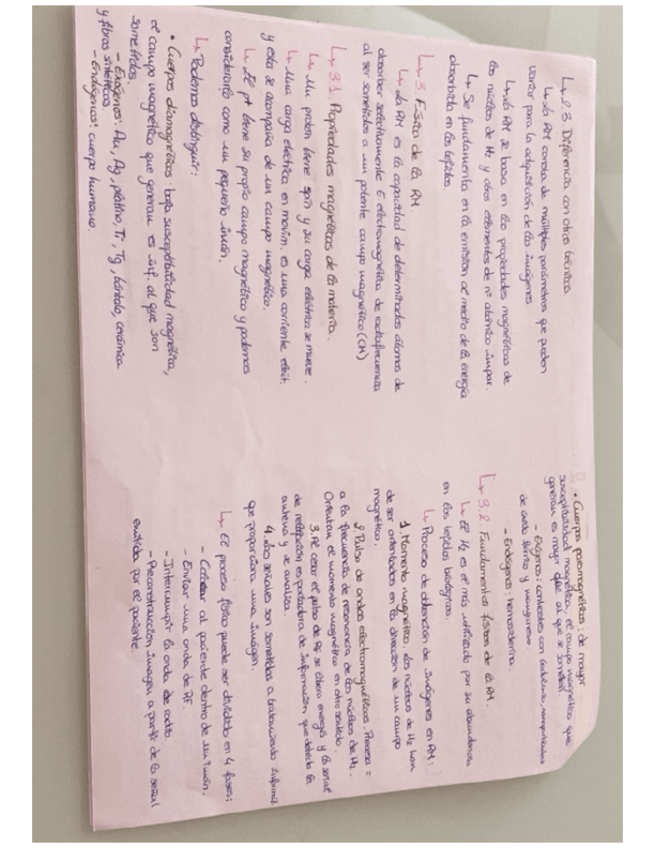 ↳ 2.3 Diferencia con otras técnicas
↳ La RM consta de múltiples parámetros que pueden
variar para la adquisición de las imágenes
↳ La RM se basa en las propiedades magnéticas de
los núcleos de H₂ y otros elementos de nº atómico impar.
↳ Se fundamenta en la emisión al medio de la energía
absorbida en los tejidos
↳ 3. Física de la RM
↳ La RM es la capacidad de determinados átomos de
absorber selectivamente E electromagnética de radiofrecuencia
al ser sometidos a un potente campo magnético (CM)
↳ 3.1 Propiedades magnéticas de la materia.
↳ Un protón tiene spin y su carga eléctrica se mueve.
↳ Una carga eléctrica en movim. es una corriente eléct.
y esta se acompaña de un campo magnético.
↳ El p+ tiene su propio campo magnético y podemos
considerarlo como un pequeño imán.
↳ Podemos distinguir:
• Cuerpos diamagnéticos: baja susceptibilidad magnética,
el campo magnético que generan es inf. al que son
sometidos.
- Exógenos: Au, Ag, platino, Ti, Tg, tántalo, cerámica
y fibras sintéticas
- Endógenos: cuerpo humano.
• Cuerpos paramagnéticos: de mayor
susceptibilidad magnética, el campo magnético que
generan es mayor que al que se someten.
- Exógenos: contrastes con gadolinio,
de óxido férrico y manganeso
- Endógenos: hemosiderina.
↳ 3.2 Fundamentos físicos de la RM.
↳ El H₂ es el más utilizado por su abundancia
en los tejidos biológicos.
↳ Proceso de obtención de imágenes en RM:
1. Momento magnético. Los núcleos de H₂ han
de ser orientados en la dirección de un campo
magnético.
2. Pulso de ondas electromagnéticas. Proceso =
a la frecuencia de resonancia de los núcleos de H₂.
Orientan el momento magnético en otro sentido.
3. Al cesar el pulso de RF se libera energía y la señal
de relajación es portadora de información que detecta la
antena y se analiza.
4. Las señales son sometidas a tratamiento informát.
que proporciona una imagen.
↳ El proceso físico puede ser dividido en 4 fases:
- Colocar al paciente dentro de un imán.
- Enviar una onda de RF.
- Interrumpir la onda de radio.
- Reconstrucción imagen a partir de la señal
emitida por el paciente.